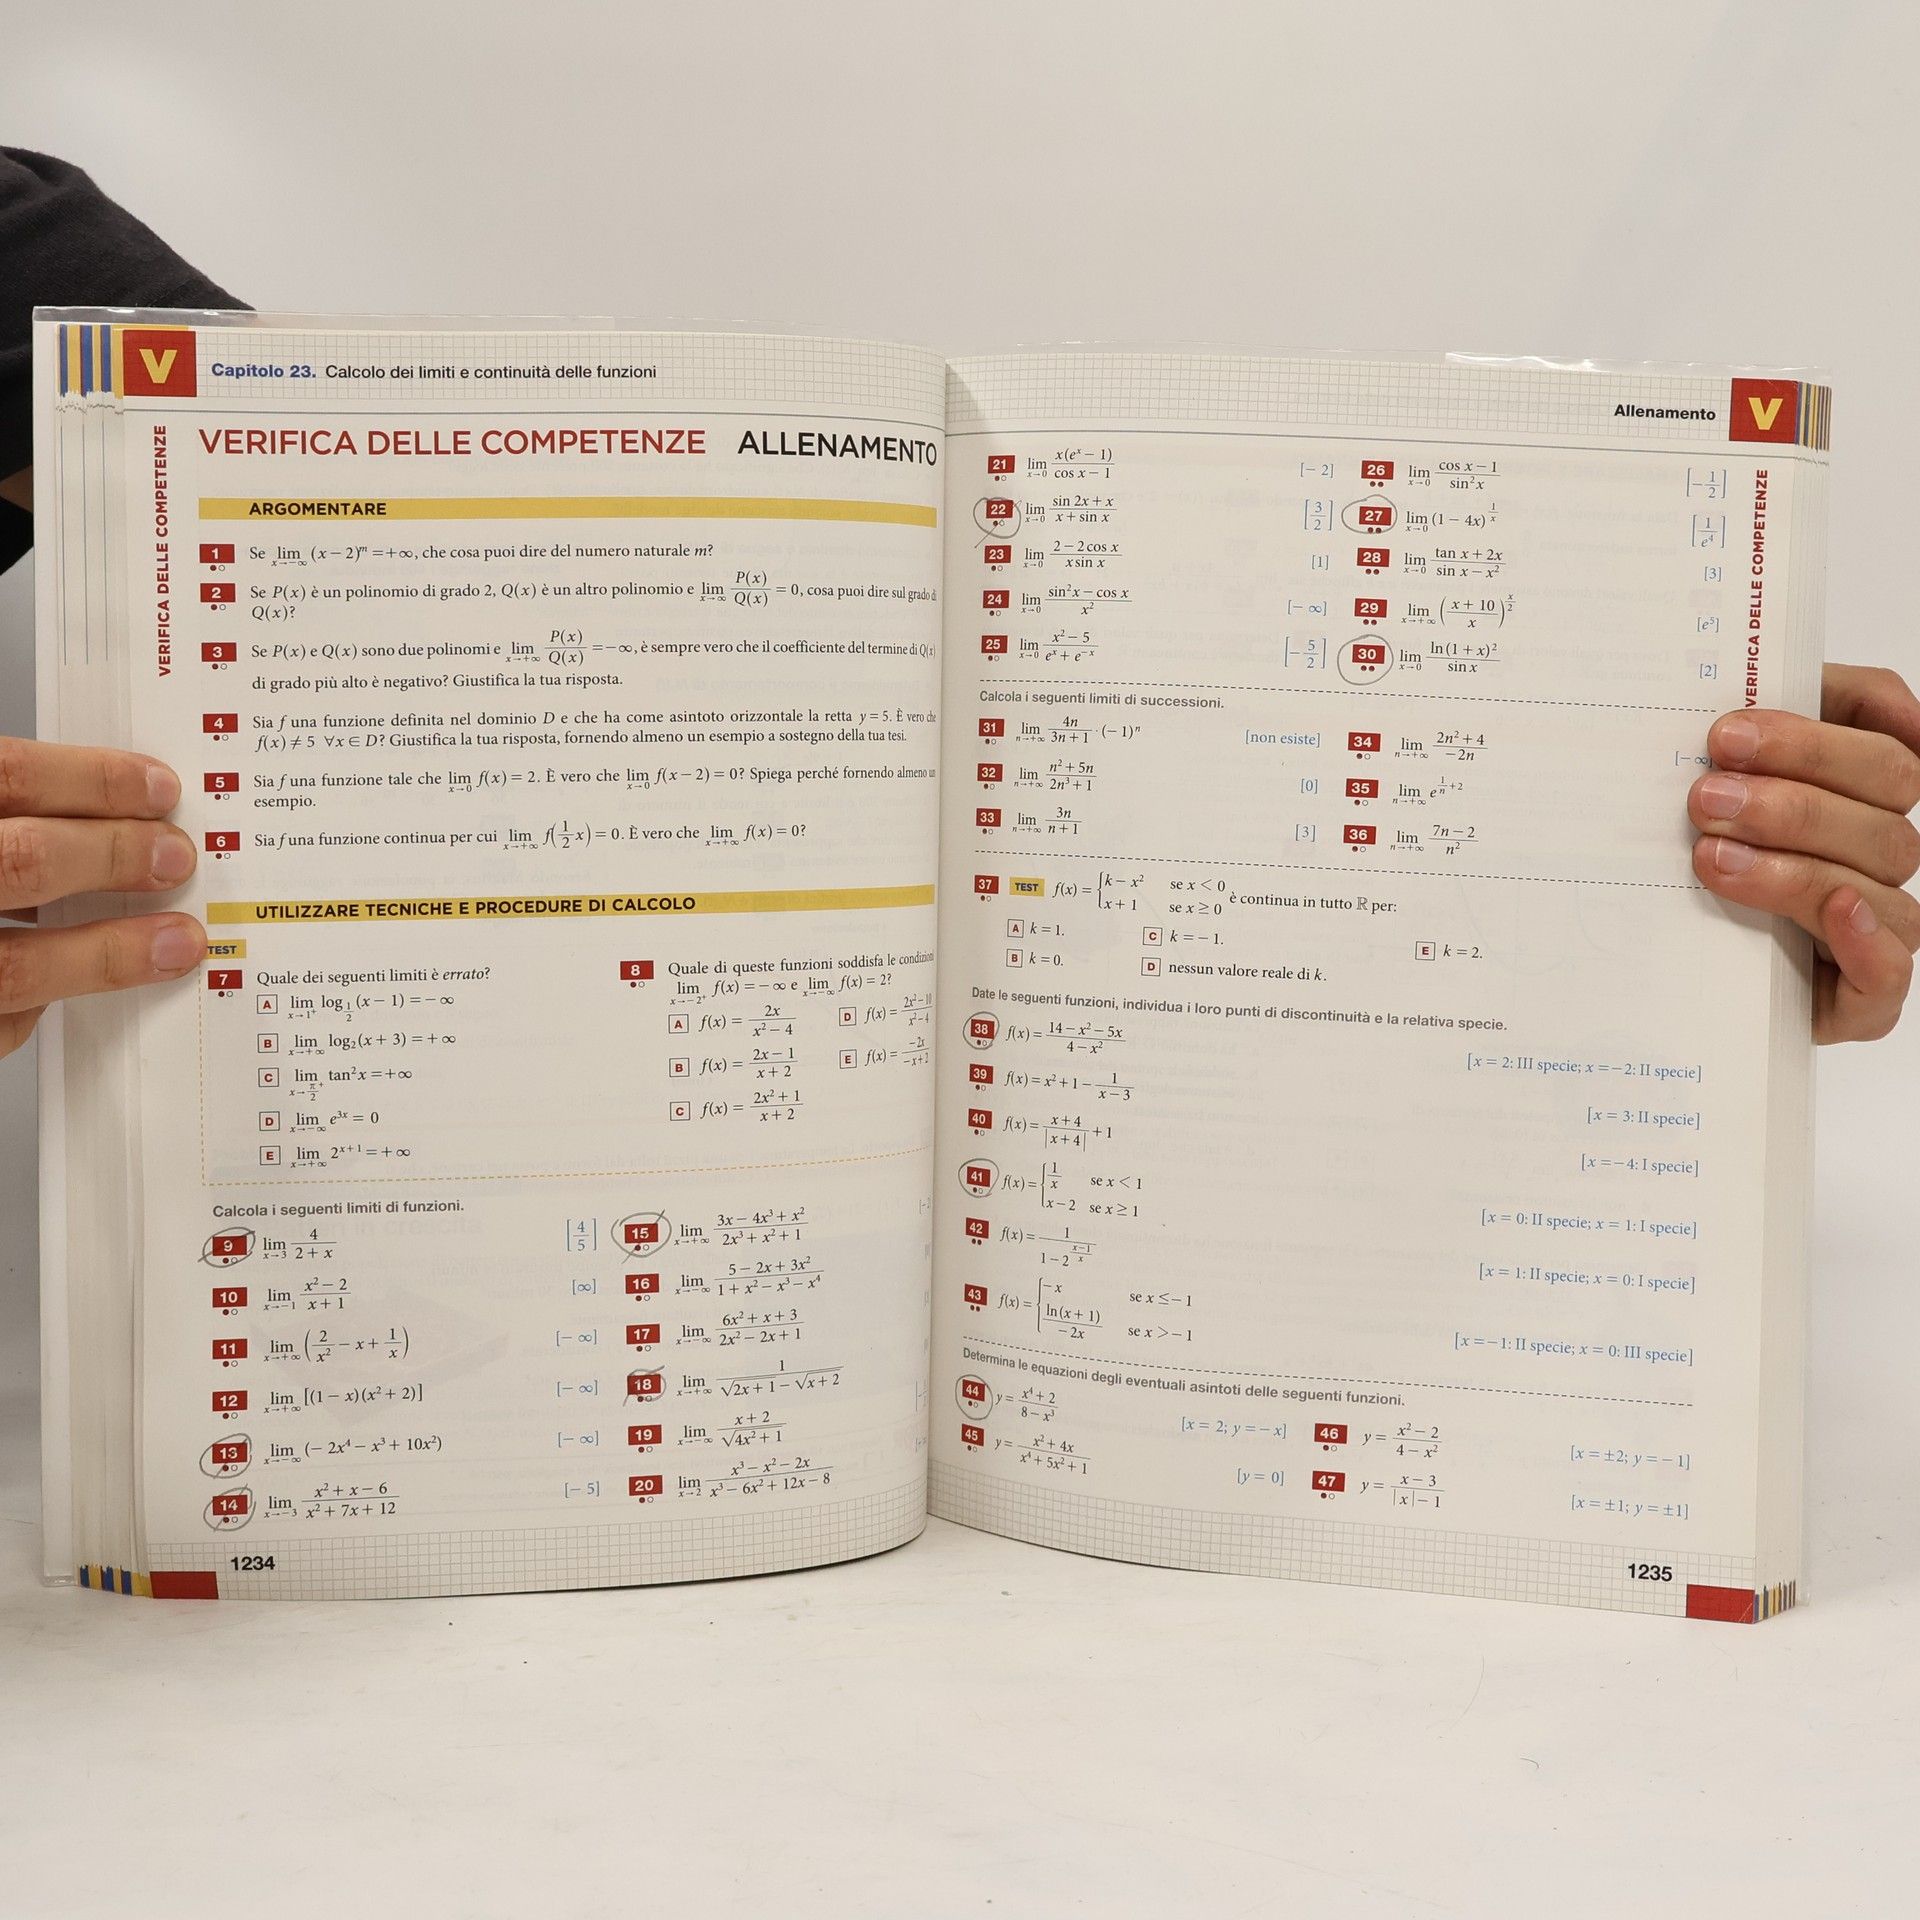 V
Capitolo 23. Calcolo dei limiti e continuità delle funzioni
VERIFICA DELLE COMPETENZE
VERIFICA DELLE COMPETENZE ALLENAMENTO
ARGOMENTARE
1 Se lim x→−∞ (x − 2)^m = +∞, che cosa puoi dire del numero naturale m?
2 Se P(x) è un polinomio di grado 2, Q(x) è un altro polinomio e lim x→∞ P(x)/Q(x) = 0, cosa puoi dire sul grado di
Q(x)?
3 Se P(x) e Q(x) sono due polinomi e lim x→+∞ P(x)/Q(x) = −∞, è sempre vero che il coefficiente del termine di Q(x)
di grado più alto è negativo? Giustifica la tua risposta.
4 Sia f una funzione definita nel dominio D e che ha come asintoto orizzontale la retta y = 5. È vero che
f(x) ≠ 5 ∀x ∈ D? Giustifica la tua risposta, fornendo almeno un esempio a sostegno della tua tesi.
5 Sia f una funzione tale che lim x→0 f(x) = 2. È vero che lim x→0 f(x − 2) = 0? Spiega perché fornendo almeno un
esempio.
6 Sia f una funzione continua per cui lim x→+∞ f(1/2 x) = 0. È vero che lim x→+∞ f(x) = 0?
UTILIZZARE TECNICHE E PROCEDURE DI CALCOLO
TEST
7 Quale dei seguenti limiti è errato?
A lim x→1⁺ log_{1/2} (x − 1) = −∞
B lim x→+∞ log₂(x + 3) = +∞
C lim x→π/2⁺ tan²x = +∞
D lim x→−∞ e^{3x} = 0
E lim x→+∞ 2^{x+1} = +∞
8 Quale di queste funzioni soddisfa le condizioni
lim x→−2⁺ f(x) = −∞ e lim x→−∞ f(x) = 2?
A f(x) = 2x/(x² − 4)
D f(x) = (2x² − 10)/(x² − 4)
B f(x) = (2x − 1)/(x + 2)
E f(x) = −2x/(−x + 2)
C f(x) = (2x² + 1)/(x + 2)
Calcola i seguenti limiti di funzioni.
9 lim x→3 4/(2 + x) [4/5]
10 lim x→−1 (x² − 2)/(x + 1) [∞]
11 lim x→+∞ (2/x² − x + 1/x) [− ∞]
12 lim x→+∞ [(1 − x)(x² + 2)] [− ∞]
13 lim x→−∞ (− 2x⁴ − x³ + 10x²) [− ∞]
14 lim x→−3 (x² + x − 6)/(x² + 7x + 12) [− 5]
15 lim x→+∞ (3x − 4x³ + x²)/(2x³ + x² + 1)
16 lim x→−∞ (5 − 2x + 3x²)/(1 + x² − x³ − x⁴)
17 lim x→−∞ (6x² + x + 3)/(2x² − 2x + 1)
18 lim x→+∞ 1/(√(2x + 1) − √(x + 2))
19 lim x→−∞ (x + 2)/√(4x² + 1)
20 lim x→2 (x³ − x² − 2x)/(x³ − 6x² + 12x − 8)
1234
Allenamento
V
VERIFICA DELLE COMPETENZE
21 lim x→0 x(e^x − 1)/(cos x − 1) [− 2]
22 lim x→0 (sin 2x + x)/(x + sin x) [3/2]
23 lim x→0 (2 − 2 cos x)/(x sin x) [1]
24 lim x→0 (sin²x − cos x)/x² [− ∞]
25 lim x→0 (x² − 5)/(e^x + e^{−x}) [− 5/2]
26 lim x→0 (cos x − 1)/sin²x [− 1/2]
27 lim x→0 (1 − 4x)^{1/x} [1/e⁴]
28 lim x→0 (tan x + 2x)/(sin x − x²) [3]
29 lim x→+∞ ((x + 10)/x)^{x/2} [e⁵]
30 lim x→0 ln(1 + x)²/sin x [2]
Calcola i seguenti limiti di successioni.
31 lim n→+∞ 4n/(3n + 1) · (−1)^n [non esiste]
32 lim n→+∞ (n² + 5n)/(2n³ + 1) [0]
33 lim n→+∞ 3n/(n + 1) [3]
34 lim n→+∞ (2n² + 4)/(−2n) [− ∞]
35 lim n→+∞ e^{1/n + 2}
36 lim n→+∞ (7n − 2)/n²
37 TEST f(x) = { k − x² se x < 0
x + 1 se x ≥ 0 è continua in tutto ℝ per:
A k = 1. C k = − 1. E k = 2.
B k = 0. D nessun valore reale di k.
Date le seguenti funzioni, individua i loro punti di discontinuità e la relativa specie.
38 f(x) = (14 − x² − 5x)/(4 − x²) [x = 2: III specie; x = −2: II specie]
39 f(x) = x² + 1 − 1/(x − 3) [x = 3: II specie]
40 f(x) = (x + 4)/|x + 4| + 1 [x = −4: I specie]
41 f(x) = { 1/x se x < 1
x − 2 se x ≥ 1 [x = 0: II specie; x = 1: I specie]
42 f(x) = 1/(1 − 2^{(x−1)/x}) [x = 1: II specie; x = 0: I specie]
43 f(x) = { −x se x ≤ −1
ln(x + 1)/(−2x) se x > −1 [x = −1: II specie; x = 0: III specie]
Determina le equazioni degli eventuali asintoti delle seguenti funzioni.
44 y = (x⁴ + 2)/(8 − x³) [x = 2; y = − x]
45 y = (x² + 4x)/(x⁴ + 5x² + 1) [y = 0]
46 y = (x² − 2)/(4 − x²) [x = ±2; y = − 1]
47 y = (x − 3)/(|x| − 1) [x = ±1; y = ±1]
1235